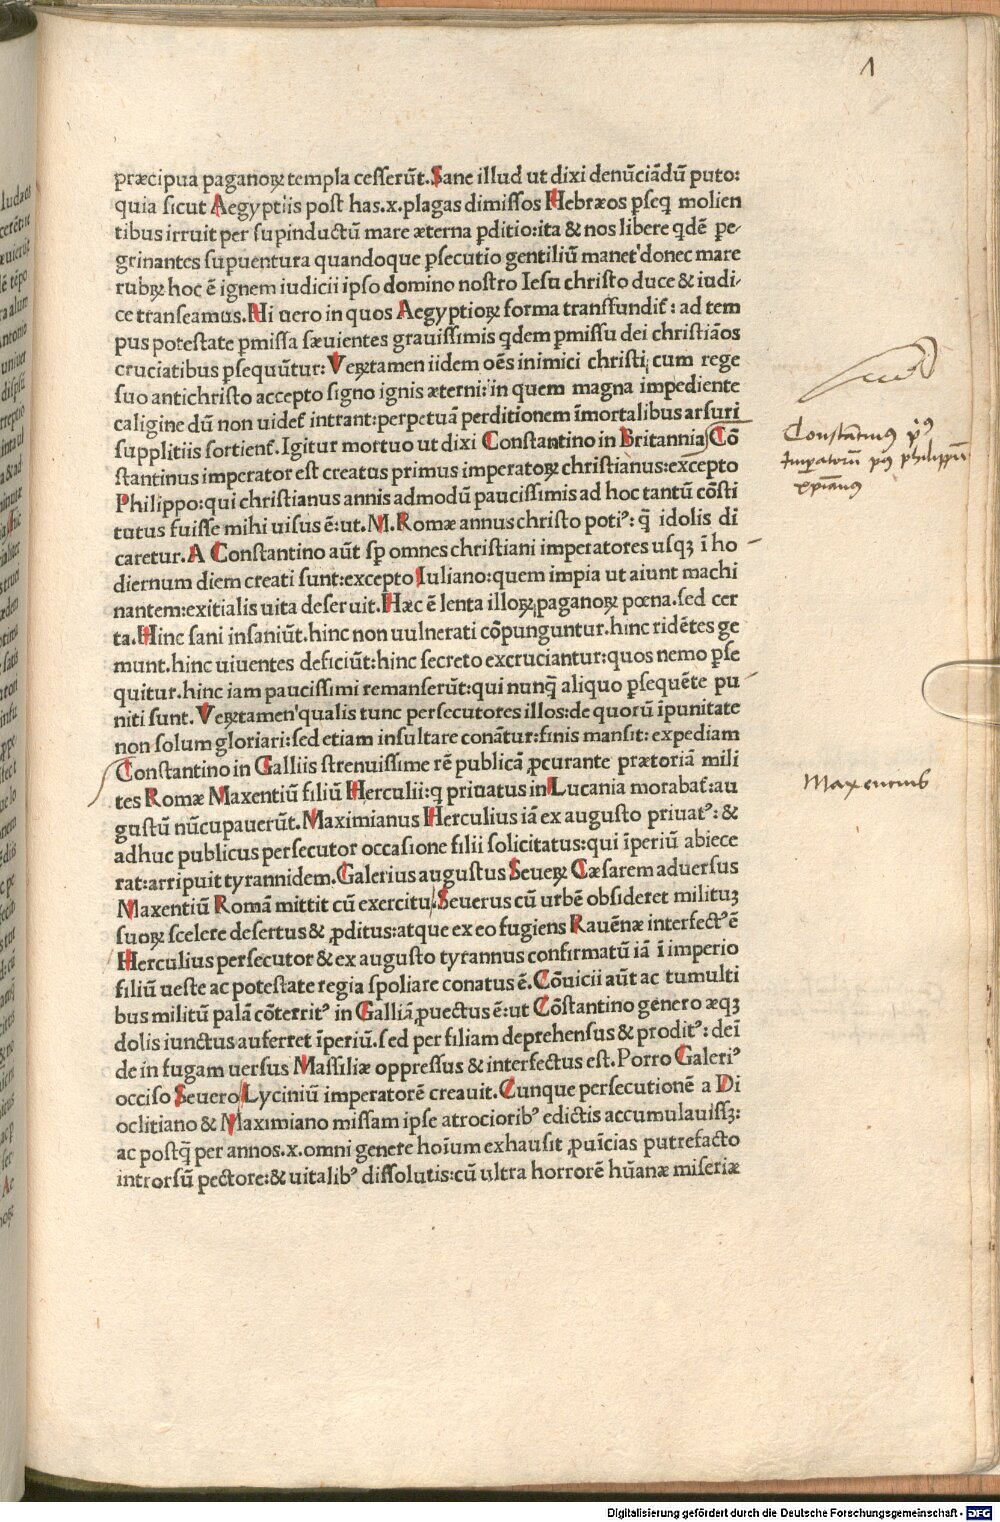 1
præcipua paganoꝝ templa cesserūt. Sane illud ut dixi denūciādū puto:
quia sicut Aegyptiis post has.x.plagas dimissos Hebræos ꝑseq molien
tibus irruit per supinductū mare æterna ꝑditio:ita & nos libere qdē pe-
grinantes supuentura quandoque ꝑsecutio gentiliū manet donec mare
rubꝝ hoc ē ignem iudicii ipso domino nostro Iesu christo duce & iudi-
ce transeamus. Hi uero in quos Aegyptioꝝ forma transfundit̄: ad tem
pus potestate ꝑmissa sæuientes grauissimis qdem ꝑmissu dei christiāos
cruciatibus ꝑsequūtur: Veꝝtamen iidem oēs inimici christi, cum rege
suo antichristo accepto signo ignis æterni: in quem magna impediente
caligine dū non uidet̄ intrant: perpetuā perditionem īmortalibus arsuri
supplitiis sortient̄. Igitur mortuo ut dixi Constantino in Britannia, Cō
stantinus imperator est creatus primus imperatoꝝ christianus: excepto
Philippo: qui christianus annis admodū paucissimis ad hoc tantū cōsti
tutus fuisse mihi uisus ē: ut. M. Romæ annus christo poti⁹: q̄ idolis di
caretur. A Constantino aūt sp̄ omnes christiani imperatores usqꝫ ī ho
diernum diem creati sunt: excepto Iuliano: quem impia ut aiunt machi
nantem: exitialis uita deseruit. Hæc ē lenta illoꝝ paganoꝝ pœna. sed cer
ta. Hinc sani insaniūt. hinc non uulnerati cōpunguntur. hinc ridētes ge
munt. hinc uiuentes deficiūt: hinc secreto excruciantur: quos nemo ꝑse
quitur. hinc iam paucissimi remanserūt: qui nunq̄ aliquo ꝑsequēte pu
niti sunt. Veꝝtamen qualis tunc persecutores illos: de quorū īpunitate
non solum gloriari: sed etiam insultare conātur: finis mansit: expediam
Constantino in Galliis strenuissime rē publicā ꝓcurante prætoriā mili
tes Romæ Maxentiū filiū Herculii: q priuatus in Lucania morabat̄: au
gustū nūcupauerūt. Maximianus Herculius iā ex augusto priuat⁹: &
adhuc publicus persecutor occasione filii solicitatus: qui īperiū abiece
rat: arripuit tyrannidem. Galerius augustus Seueꝝ Cæsarem aduersus
Maxentiū Romā mittit cū exercitu. Seuerus cū urbē obsideret militūꝫ
suoꝝ scelere desertus & ꝓditus: atque ex eo fugiens Rauēnæ interfect⁹ ē
Herculius persecutor & ex augusto tyrannus confirmatū iā ī imperio
filiū ueste ac potestate regia spoliare conatus ē. Cōuicii aūt ac tumulti
bus militū palā cōterrit⁹ in Galliā ꝓuectus ē: ut Cōstantino genero æqꝫ
dolis iunctus auferret īperiū. sed per filiam deprehensus & prodit⁹: deī
de in fugam uersus Massiliæ oppressus & interfectus est. Porro Galeri⁹
occiso Seuero Lyciniū imperatorē creauit. Cunque persecutionē a Di
oclitiano & Maximiano missam ipse atrociorib⁹ edictis accumulauissꝫ:
ac postq̄ per annos.x.omni genere hoīum exhausit ꝓuīcias putrefacto
introrsū pectore: & uitalib⁹ dissolutis: cū ultra horrorē hūanæ miseriæ
Constantinus
philippū
Maxencius
Digitalisierung gefördert durch die Deutsche Forschungsgemeinschaft - DFG